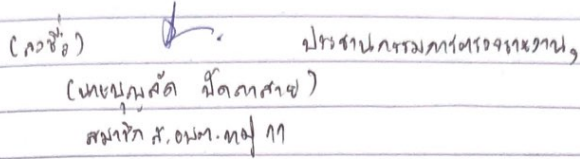 (ลงชื่อ) ประธานกรรมการตรวจรายงานฯ
(นายบุญลัด ปัดตาสาย)
สมาชิก ส.อบต. หมู่ 11